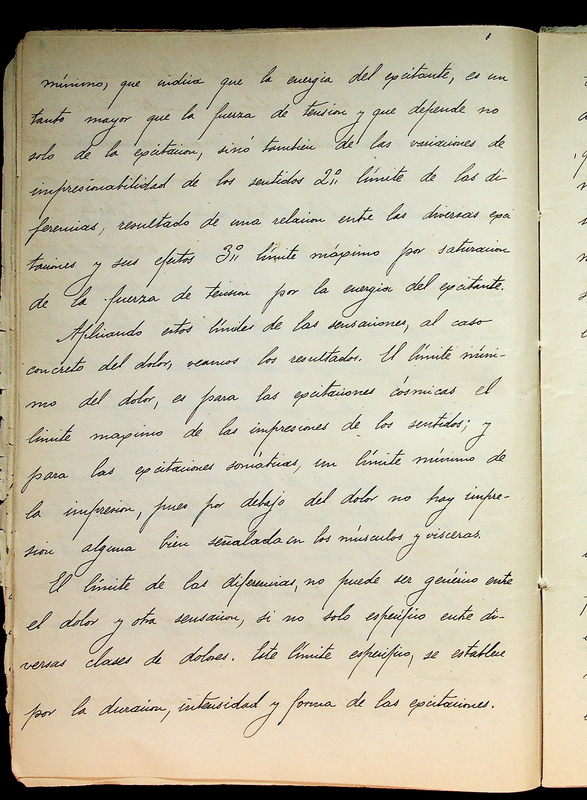 mínimo, que indica que la energia del excitante, es un
tanto mayor que la fuerza de tension y que depende no
solo de la excitacion, sinó tambien de las variaciones de
impresionabilidad de los sentidos 2º límite de las di-
ferencias, resultado de una relacion entre las diversas exci
taciones y sus efectos 3º límite máximo por saturacion
de la fuerza de tension por la energia del excitante.
Aplicando estos límites de las sensaciones, al caso
concreto del dolor, veamos los resultados. El límite míni-
mo del dolor, es para las excitaciones cósmicas el
límite maximo de las impresiones de los sentidos; y
para las excitaciones somáticas, un límite mínimo de
la impresion, pues por debajo del dolor no hay impre-
sion alguna bien señalada en los músculos y visceras.
El límite de las diferencias, no puede ser genérico entre
el dolor y otra sensacion, si no solo específico entre di-
versas clases de dolores. Este límite específico, se establece
por la duracion, intensidad y forma de las excitaciones.